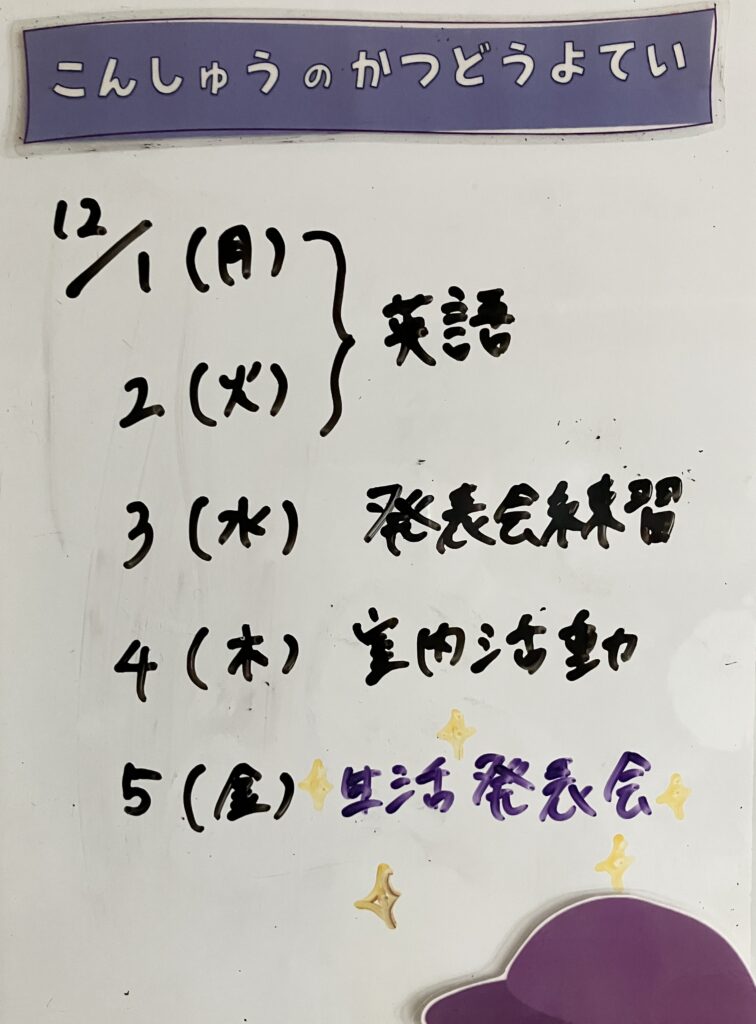 こんしゅうのかつどうよてい
12/1(月)
英語
2(火)
3(水) 発表会練習
4(木) 室内活動
5(金) 生活発表会